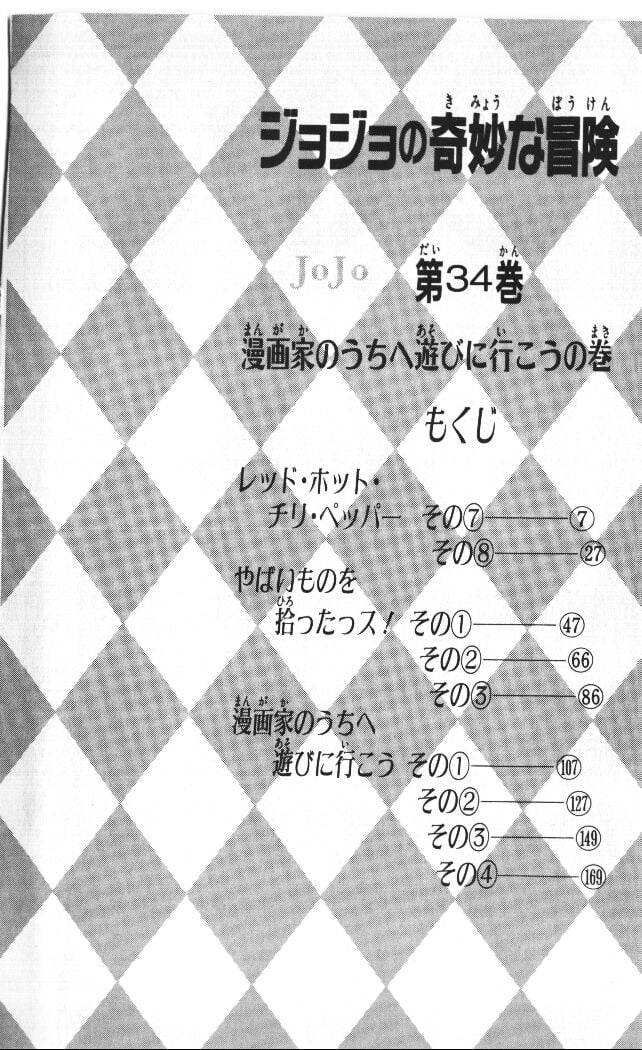 ジョジョの奇妙な冒険
きみょう ぼうけん
JoJo
第34巻
だい かん
漫画家のうちへ遊びに行こうの巻
まんがか あそ い まき
もくじ
レッド・ホット・
チリ・ペッパー その⑦――⑦
その⑧――㉗
やばいものを
拾ったっス! その①――㊼
ひろ
その②――66
その③――86
漫画家のうちへ
まんがか
遊びに行こう その①――107
あそ い
その②――127
その③――149
その④――169